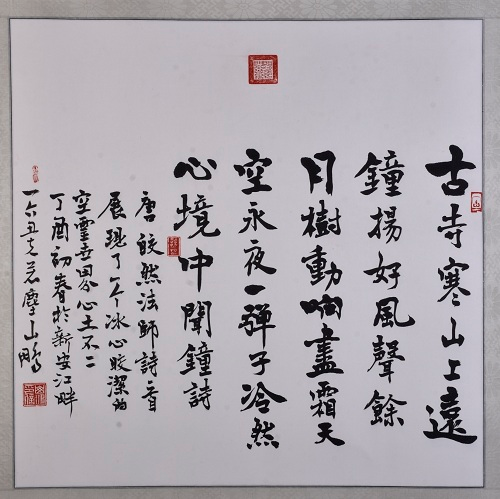 古寺寒山上遠
鐘揚好風聲餘
月樹動響盡霜天
空永夜一彈子冷然
心境中聞鐘詩
唐皎然法師詩一首
展現了一个冰心皎潔的
空靈世界心土不二
丁酉初春於新安江畔
山鵬